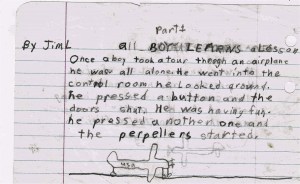 Part 1
By Jim L   all BOY LEARNS a Lesson
Once a boy took a tour though an airplane
he was all alone. he went into the
control room he looked around.
he pressed a button and the
doors shut. He was having fun.
he pressed a nother one and
the perpellers started.
USA